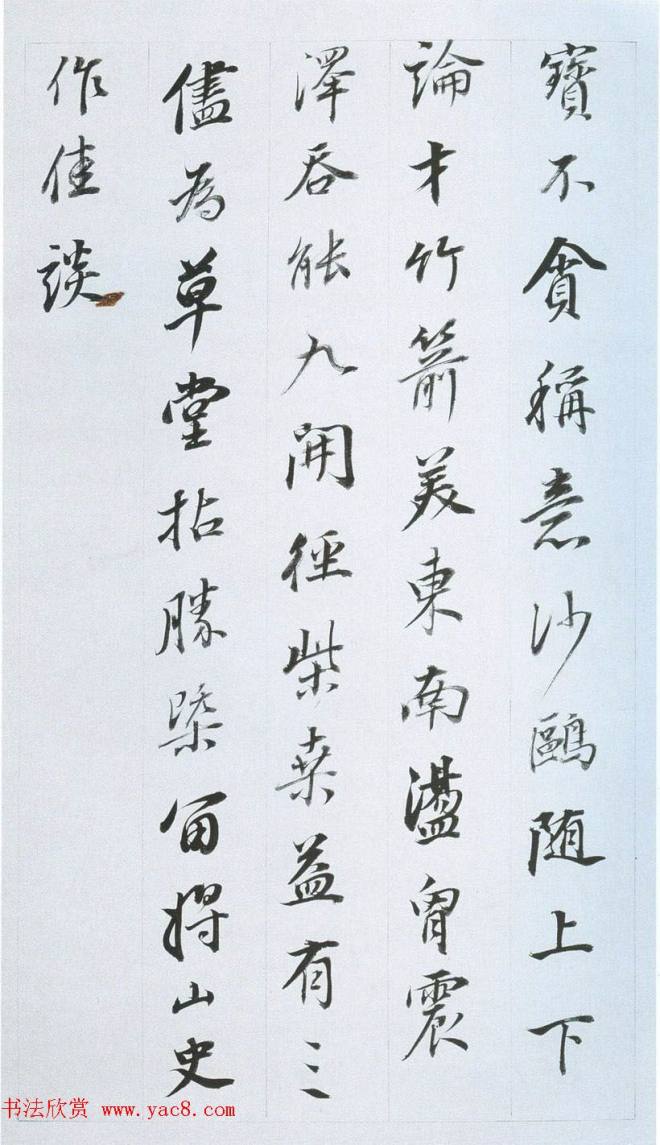 寶不貪稱意沙鷗随上下
論才竹箭美東南盪胷震
澤吞能九開徑柴桒益有三
儘為草堂拈勝槩留將山史
作佳談
书法欣赏 www.yac8.com